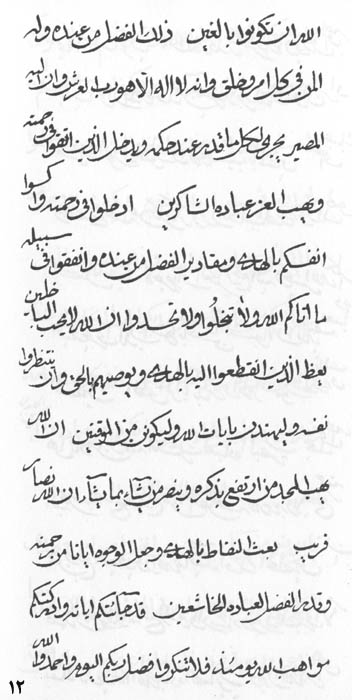 الله ان تكونوا بالغين ذلك الفضل من عنده وله
المن في كل امر وخلق وانه لا اله الا هو رب العرش وان اليه
المصير يجري لكل ما قدر عند حكمه ويدخل الذين اتقوا في رحمته
ويهب العز عباده الشاكرين ادخلوا في رحمته واكسوا
انفسكم بالهدى ومقادير الفضل من عنده وانفقوا في سبيله
ما اتاكم الله ولا تبخلوا ولا تحسدوا ان الله لا يحب الباخلين
يعظ الذين انقطعوا اليه بالهدى ويوصيهم بالحق وان ينتظروا
نفسه وليهتدن بايات الله وليكونن من الموقنين ان الله
يهب المجد من ارتفع بذكره وينصر من يشاء بما يشاء ان نصر الله
قريب بعث النقاط بالهدى وجعل الوجوه ايات من رحمته
وقدر الفضل لعباده الخاشعين قد جائتكم اياته وادركتكم
مواهب الله يومئذ فلاتنكروا فضل ربكم اليوم واحمدوا الله
١٢